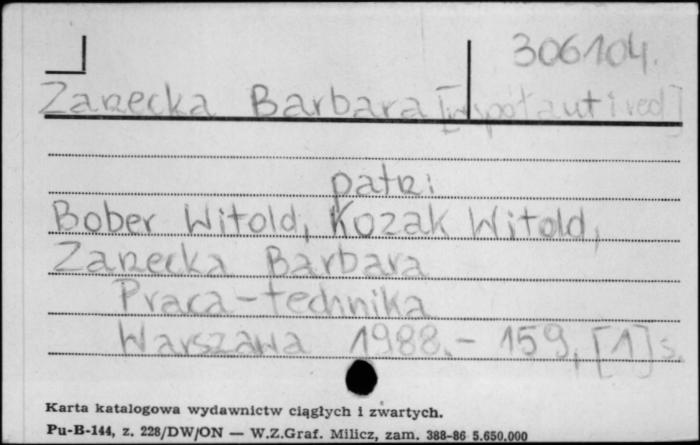 306104.
Zarzecka Barbara [współaut i red]
patrz:
Bober Witold, Kozak Witold,
Zarzecka Barbara
Praca-technika
Warszawa 1988.- 159, [1] s.
Karta katalogowa wydawnictw ciągłych i zwartych.
Pu-B-144, z. 228/DW/ON — W.Z.Graf. Milicz, zam. 388-86 5.650.000